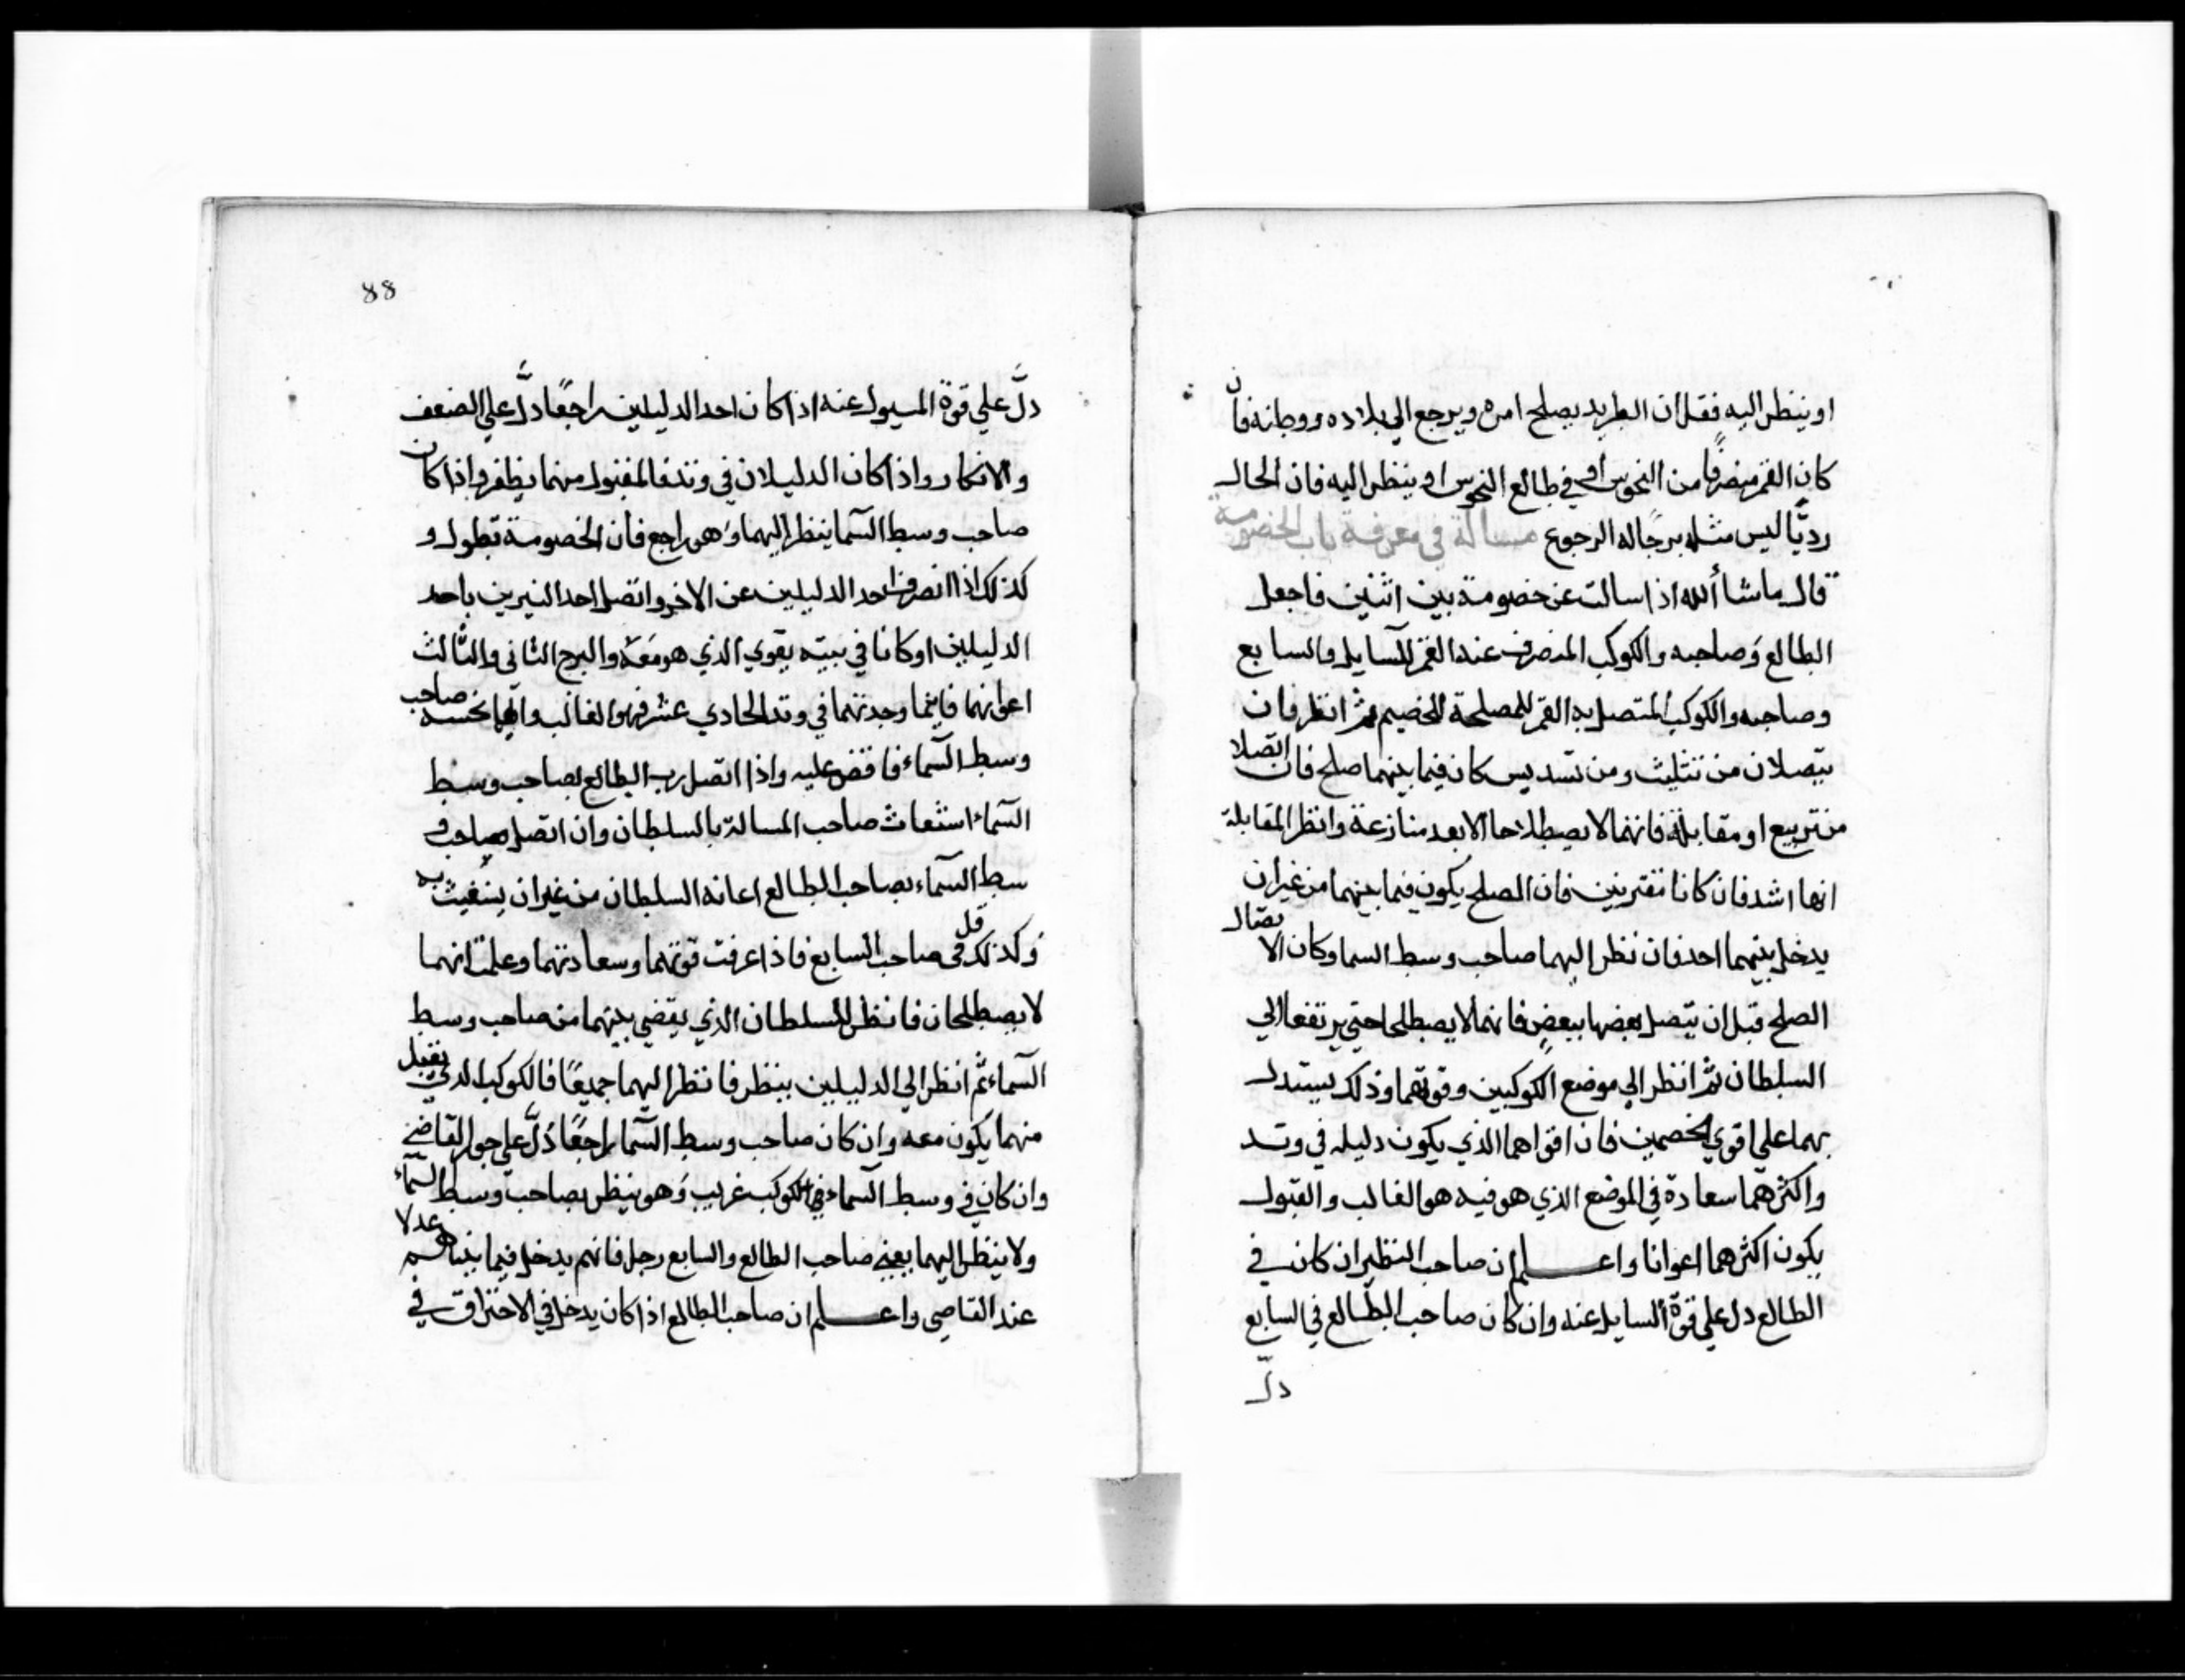 او ينظر اليه فقل ان الطريد يصلح امره ويرجع الي بلاده ووطانه فان
كان القمر منصرفًا من النحوس او في طالع النحوس او ينظر اليه فان الحال
رديًّا ليس مثله يرجاله الرجوع مسالة في معرفة باب الخصومة
قال ماشا أالله اذا سالت عن خصومة بين اثنين فاجعل
الطالع وَصاحبه والكوكب المنصرف عنه القمر للسايل والسابع
وصاحبه والكوكب المتصل به القمر للمصلحة للخصيم ثم انظر فان
يتصلان من تثليث ومن تسديس كان فيما بينهما صلح فان اتصلا
من تربيع او مقابلة فانهما لا يصطلاحا الا بعد منازعة وانظر المقابلة
انها اشد فان كانا مقترنين فان الصلح يكون فيما بينهما من غير ان
يدخل بينهما احد فان نظر اليهما صاحب وسط السما وكان الا تصال
الصلح قبل ان يتصل بعضها ببعضٍ فانهما لا يصطلحا حتي يرتفعا الي
السلطان ثم انظر الي موضع الكوكبين وقوتهما وذلك يستدل
بهما علي اقوي الخصمين فان اقواهما الذي يكون دليله في وتد
واكثرهما سعادة في الموضع الذي هو فيه هو الغالب والقبول
يكون اكثرهما اعوانا واعلم ان صاحب النظير ان كان في
الطالع دل علي قوة السايل عنه وان كان صاحب الطالع في السابع
دلّ
88
دلَّ علي قوة المسيول عنه اذا كان احد الدليلين راجعًا دلَّ علي الضعف
والانكار واذا كان الدليلان في وتد فالمقبول منهما يظفر واذا كان
صاحب وسط السما ينظر اليهما وَهو راجع فان الخصومة تطول و
كذلك اذا انصرف احد الدليلين عن الاخر واتصل احد النيرين باحد
الدليلين او كانا في بيته يقوي الذي هو مَعَهُ والبرج الثاني والثالث
اعوانهما فايهما وجدتهما في وتد الحادي عشر فهو الغالب وايهما نحسه صاحب
وسط السماء فاقض عليه واذا اتصل رب الطالع بصاحب وسط
السماء استغاث صاحب المسالة بالسلطان وان اتصل صاحب و
سط السماء بصاحب الطالع اعانه السلطان من غير ان يستغيث به
وكذلك قل في صاحب السابع فاذا عرفت قوتهما وسعادتهما وعلمت انهما
لا يصطلحان فانظر للسلطان الذي يقضي بينهما من صاحب وسط
السماء ثم انظر الي الدليلين ينظر فان نظر اليهما جميعًا فالكوكب الذي يقبل
منهما يكون معه وان كان صاحب وسط السما راجعًا دَلَّ علي جور القاضي
وان كان في وسط السماء كوكب غريب وَهو ينظر بصاحب وسط السماء
ولا ينظر اليهما يعني صاحب الطالع والسابع رجل فانهم يدخل فيما بينهم عدلا
عند القاضي واعلم ان صاحب الطالع اذا كان يدخل في الاحتراق في